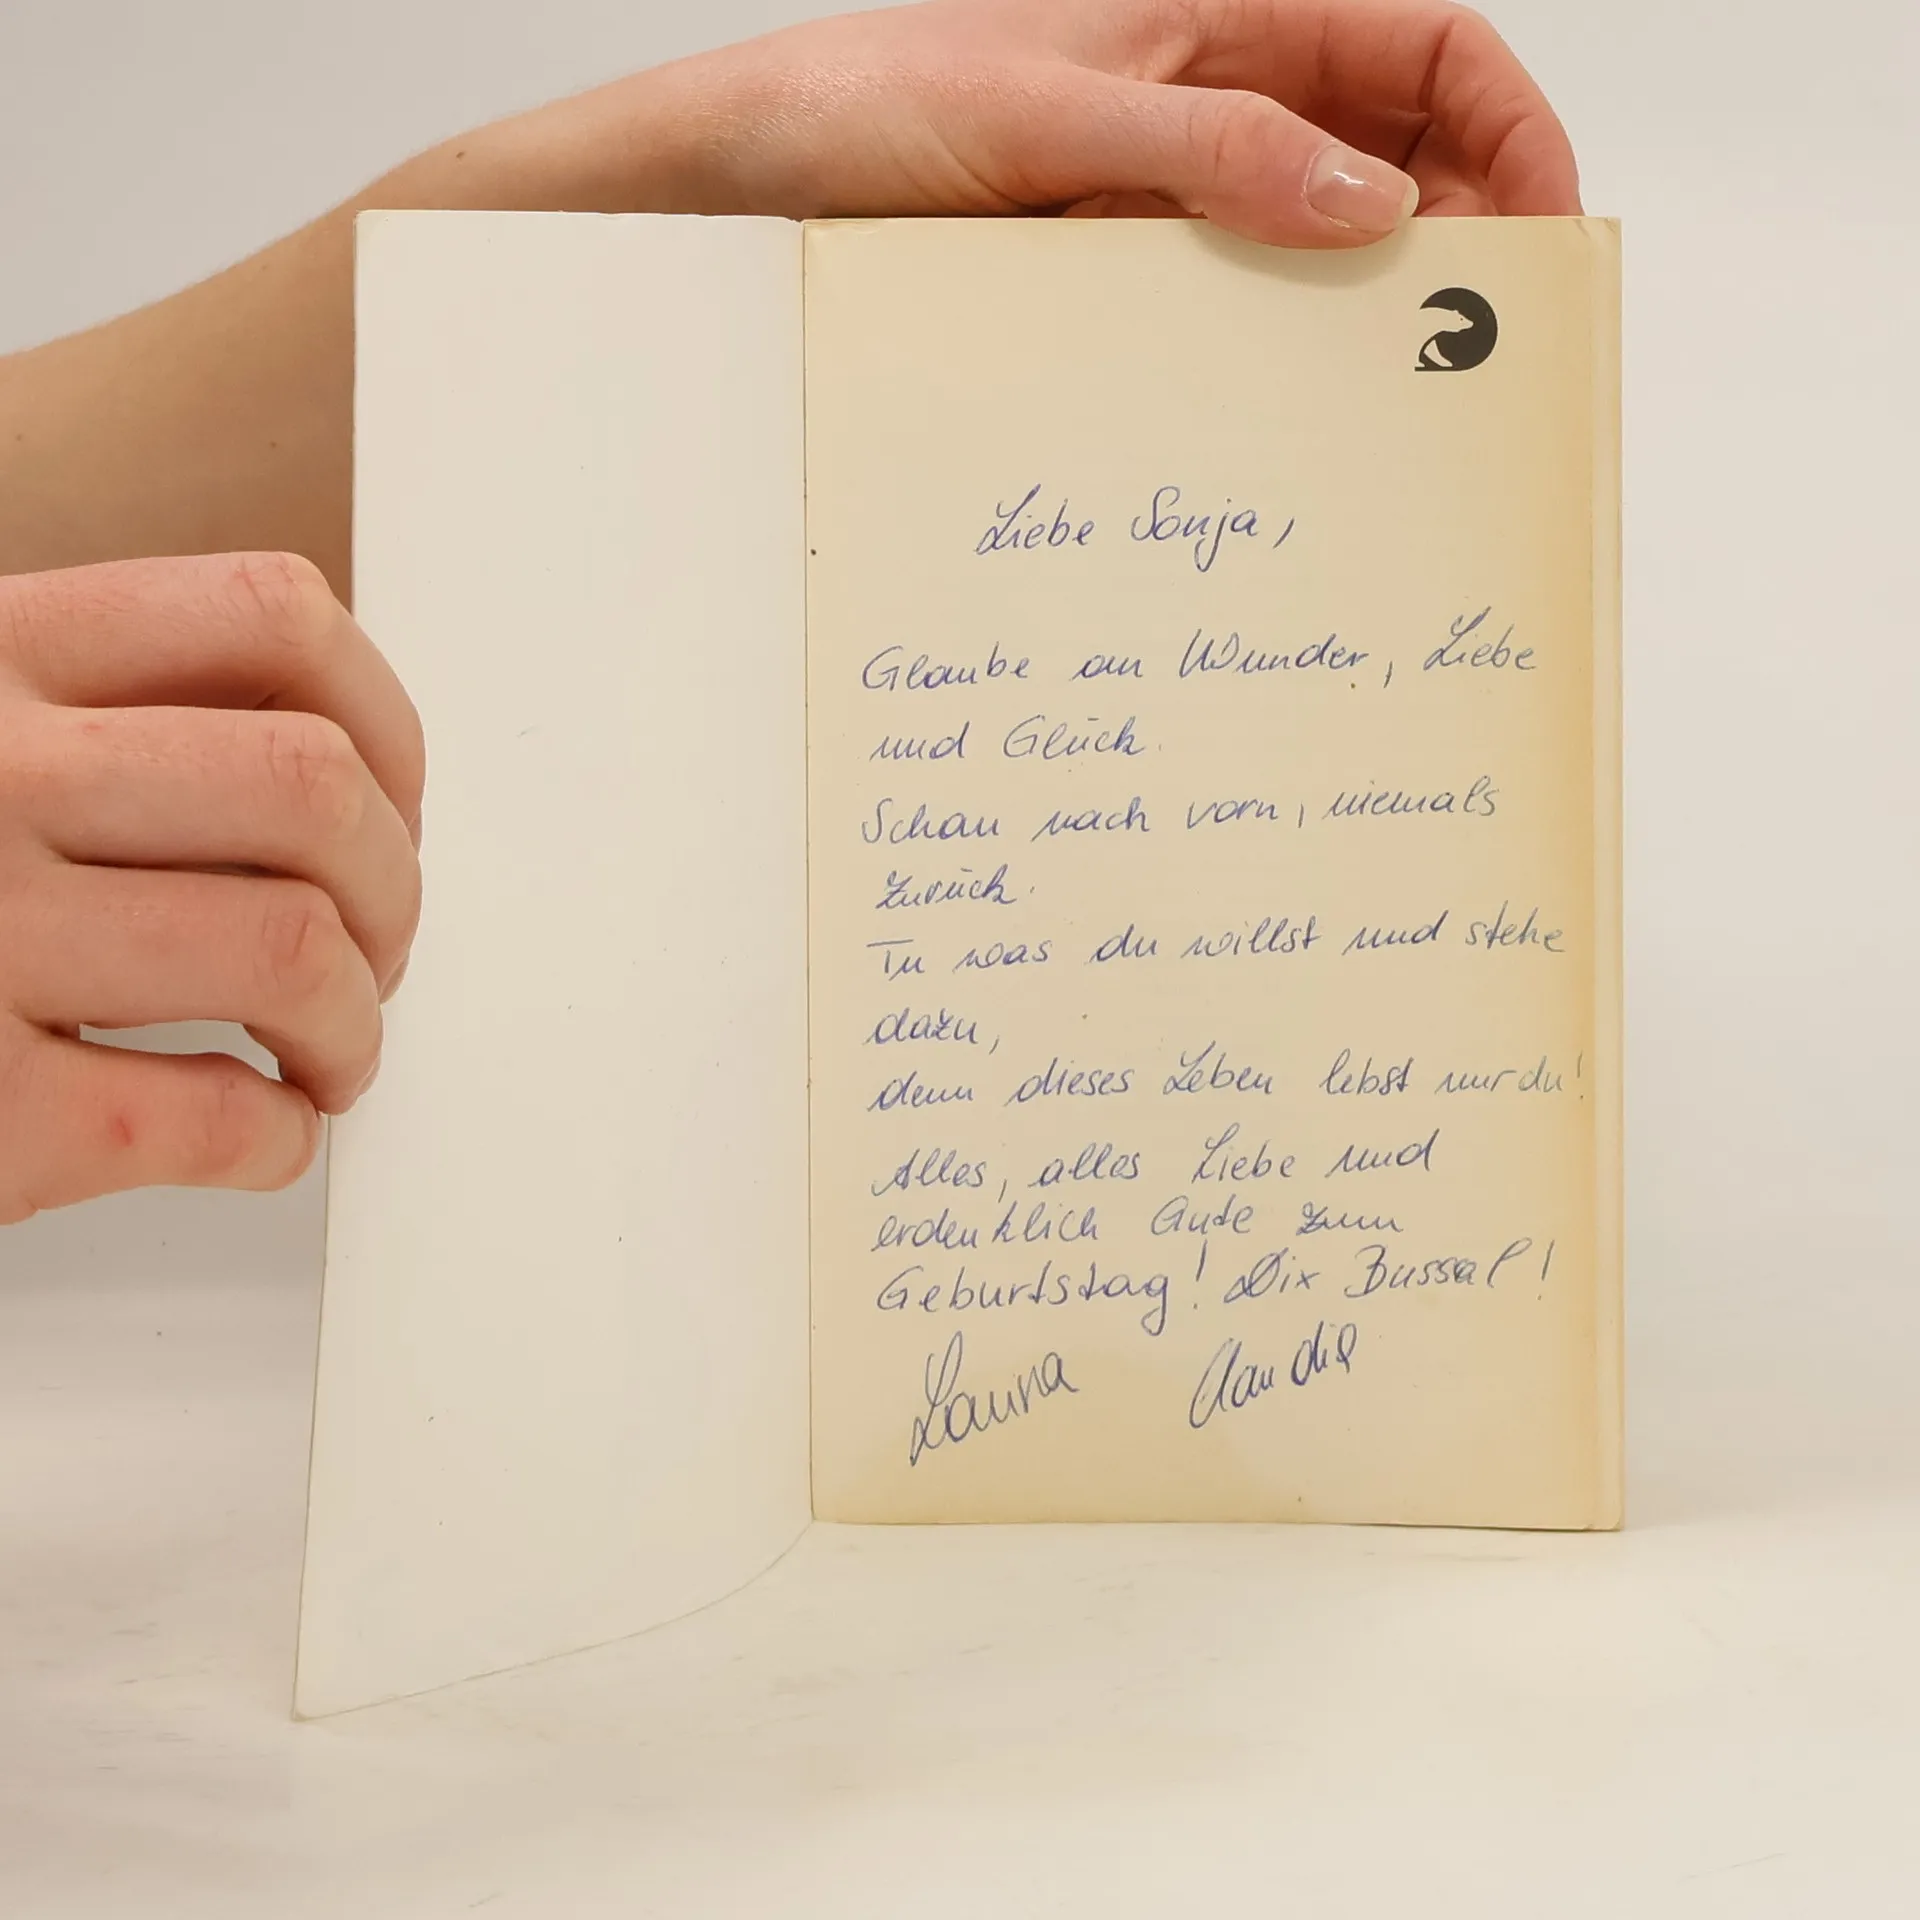 Liebe Sonja,
Glaube an Wunder, Liebe
und Glück.
Schau nach vorn, niemals
zurück.
Tu was du willst und stehe
dazu,
denn dieses Leben lebst nur du!
Alles, alles Liebe und
erdenklich Gute zum
Geburtstag! Dix Bussal!
Laura Claudia